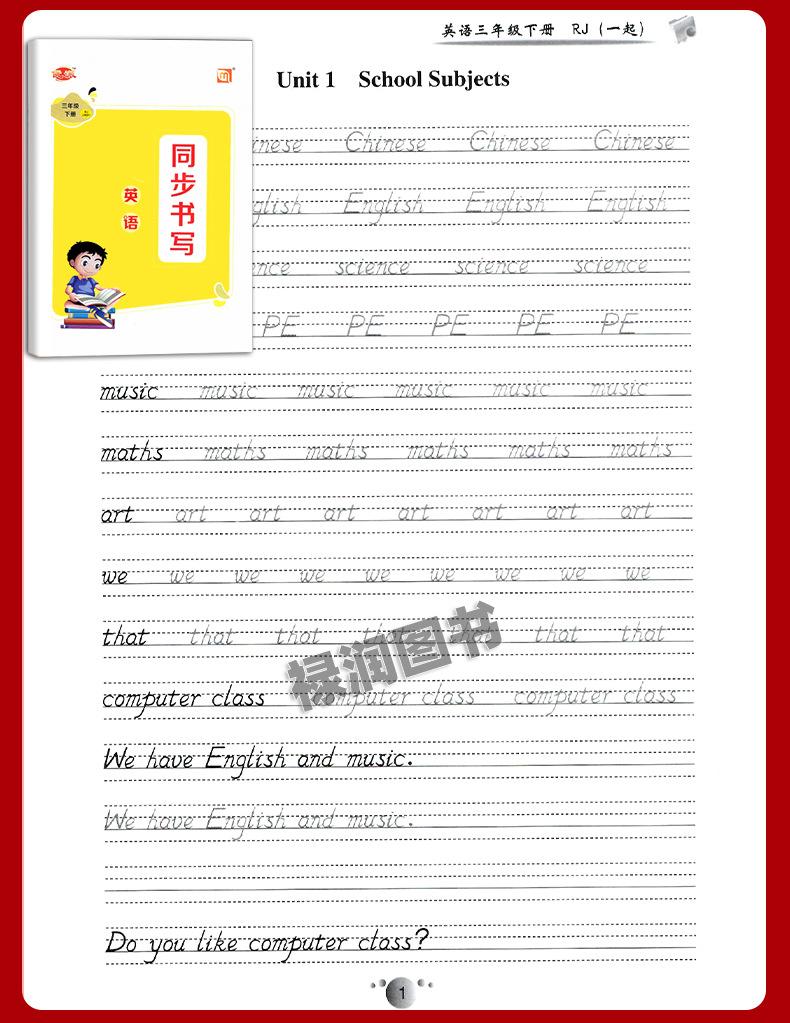 英语三年级下册 RJ（一起）
Unit 1 School Subjects
三年级
下册
同步书写
英语
Chinese Chinese Chinese
English English English
science science science
PE PE PE PE PE
music music music music music music
maths maths maths maths maths maths
art art art art art art art art
we we we we we we we we we
that that that that that that that
禄润图书
computer class computer class computer class
We have English and music.
We have English and music.
Do you like computer class?
1